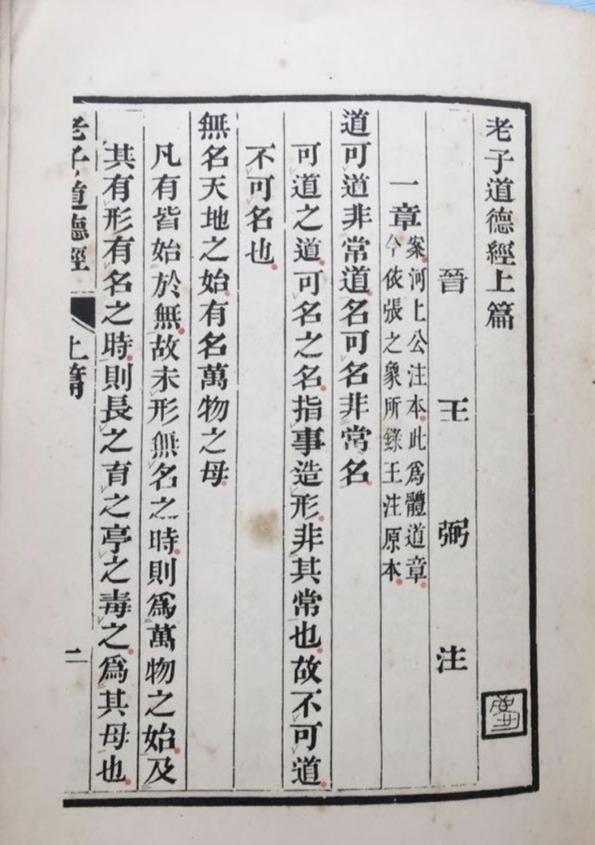 老子道德經上篇
晉 王 弼 注
一章案河上公注本此爲體道章
今依張之象所錄王注原本
道可道非常道名可名非常名
可道之道可名之名指事造形非其常也故不可道
不可名也
無名天地之始有名萬物之母
凡有皆始於無故未形無名之時則爲萬物之始及
其有形有名之時則長之育之亭之毒之爲其母也
老子道德經 上篇 一